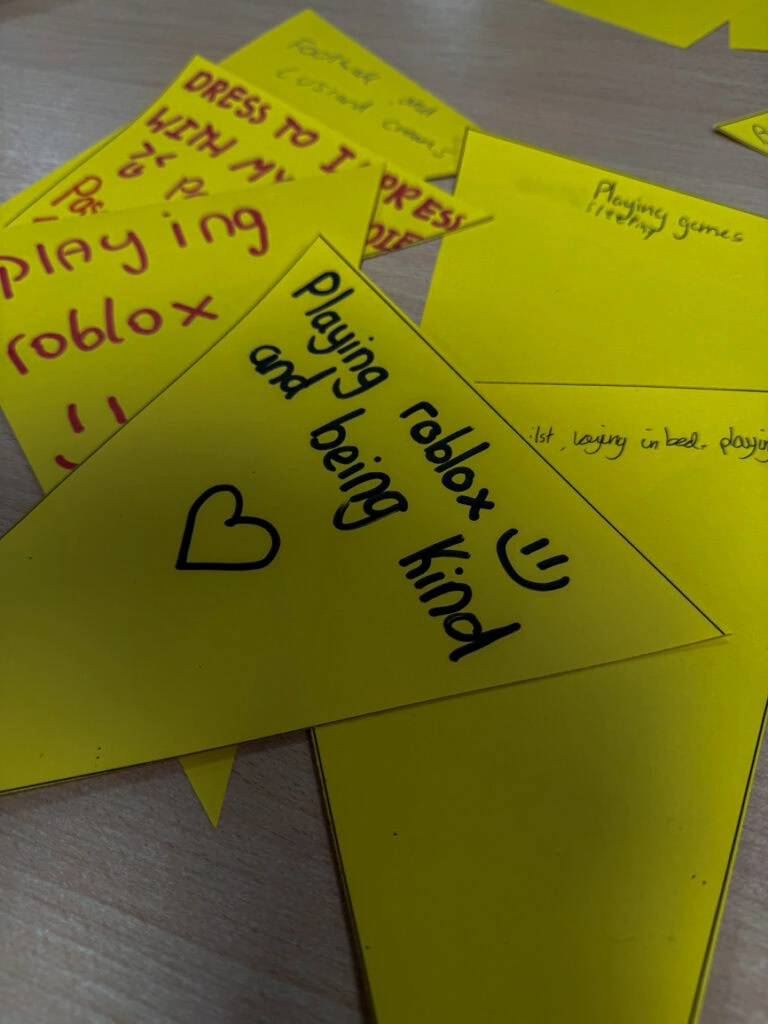 Football and
custard creams
DRESS TO I PRESS
WITH MY
DIE
playing
roblox
Playing games
sleeping
Playing roblox
and being kind
laying in bed. playin